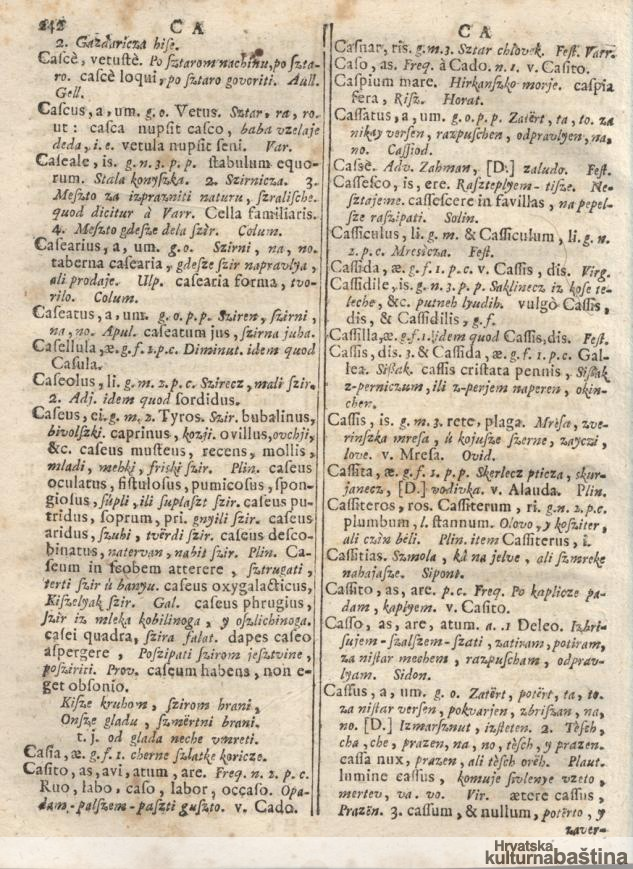 242
C A
2. Gazdaricza hise.
Cascè, vetustè. Po sztarom nachinu, po szta-
ro. cascè loqui, po sztaro govoriti. Aull.
Gell.
Cascus, a, um. g. o. Vetus. Sztar, ra, ro.
ut: casca nupsit casco, baba vzelaje
deda, i. e. vetula nupsit seni. Var.
Caseale, is. g. n. 3. p. p. stabulum equo-
rum. Stala konyszka. 2. Szirnicza. 3.
Meszto za izprazniti naturu, szralische.
quod dicitur à Varr. Cella familiaris.
4. Meszto gdesze dela szèr. Colum.
Casearius, a, um. g. o. Szirni, na, no.
taberna casearia, gdesze szir napravlya,
ali prodaje. Ulp. casearia forma, tvo-
rilo. Colum.
Caseatus, a, um. g. o. p. p. Sziren, szirni,
na, no. Apul. caseatum jus, szirna juha.
Casellula, æ. g. f. 2. p. c. Diminut. idem quod
Casula.
Caseolus, li. g. m. 2. p. c. Szirecz, mali szir.
2. Adj. idem quod sordidus.
Caseus, ei. g. m. 2. Tyros. Szir. bubalinus,
bivolszki. caprinus, kozji. ovillus, ovchji,
&c. caseus musteus, recens, mollis,
mladi, mehki, friski szir. Plin. caseus
oculatus, fistulosus, pumicosus, spon-
giosus, súpli, ili suplaszt szir. caseus pu-
tridus, soprum, pri. gnyili szir. caseus
aridus, szuhi, tvërdi szir. caseus desco-
binatus, natervan, nabit szir. Plin. Ca-
seum in scobem atterere, sztrugati,
terti szir ú banyu. caseus oxygalacticus,
Kiszelyak szir. Gal. caseus phrugius,
szir iz mleka kobilinoga, y oszlichinoga.
casei quadra, szira falat. dapes caseo
aspergere, Poszipati szirom jesztvine,
posziriti. Prov. caseum habens, non e-
get obsonio.
Kisze kruhom, szirom hrani,
Onsze gladu, szmërtni brani.
t. j. od glada neche vmreti.
Casia, æ. g. f. 1. cherne szlatke koricze.
Casito, as, avi, atum, are. Freq. n. 2. p. c.
Ruo, labo, caso, labor, occaso. Opa-
dam-palszem-paszti guszto. v. Cado.
C A
Casnar, ris. g. m. 3. Sztar chlovek. Fest. Varr.
Caso, as. Freq. à Cado. n. 1. v. Casito.
Caspium mare. Hirkanszko morje. caspia
fera, Risz. Horat.
Cassatus, a, um. g. o. p. p. Zatërt, ta, to. za
nikay versen, razpuschen, odpravlyen, na,
no. Cassiod.
Cassè. Adv. Zahman, [D.] zaludo. Fest.
Cassesco, is, ere. Raszteplyem-tisze. Ne-
sztajeme. cassescere in favillas, na pepel-
sze raszipati. Solin.
Cassiculus, li. g. m. & Cassiculum, li. g. n.
2. p. c. Mresicza. Fest.
Cassida, æ. g. f. 1. p. c. v. Cassis, dis. Virg.
Cassidile, is. g. n. 3. p. p. Saklinecz iz kose te-
leche, &c. putneh lyudih. vulgò Cassis,
dis, & Cassidilis, g. f.
Cassilla, æ. g. f. 1. idem quod Cassis, dis. Fest.
Cassis, dis. 3. & Cassida, æ. g. f. 1. p. c. Gal-
lea. Sissak. cassis cristata pennis, Sissak
z-perniczum, ili z-perjem naperen, okin-
chen.
Cassis, is. g. m. 3. rete, plaga. Mrèsa, zve-
rinszka mresa, ú kojusze szerne, zayczi,
love. v. Mresa. Ovid.
Cassita, æ. g. f. 1. p. p. Skerlecz pticza, skur-
janecz, [D.] vodivka. v. Alauda. Plin.
Cassiteros, ros. Cassiterum, ri. g. n. 2. p. c.
plumbum, l. stannum. Olovo, y kosziter,
ali czin béli. Plin. item Cassiterus, i.
Cassitias. Szmola, ká na jelve, ali szmreke
nahajasze. Sipont.
Cassito, as, are. p. c. Freq. Po kaplicze pa-
dam, kaplyem. v. Casito.
Casso, as, are, atum. a. 1 Deleo. Izbri-
sujem-szalszem-szati, zatiram, potiram,
za nistar mechem, razpuscham, odprav-
lyam. Sidon.
Cassus, a, um. g. o. Zatërt, potërt, ta, to.
za nistar versen, pokvarjen, zbriszan, na,
no. [D.] Izmarsznut, izsteten. 2. Tèsch,
cha, che, prazen, na, no, tèsch, y prazen.
cassa nux, prazen, ali tèsch orëh. Plaut.
lumine cassus, komuje sivlenye vzeto,
mertev, va. vo. Vir. ætere cassus,
Prazën. 3. cassum, & nullum, potërto, y
zaver-
Hrvatska
kulturnabaština